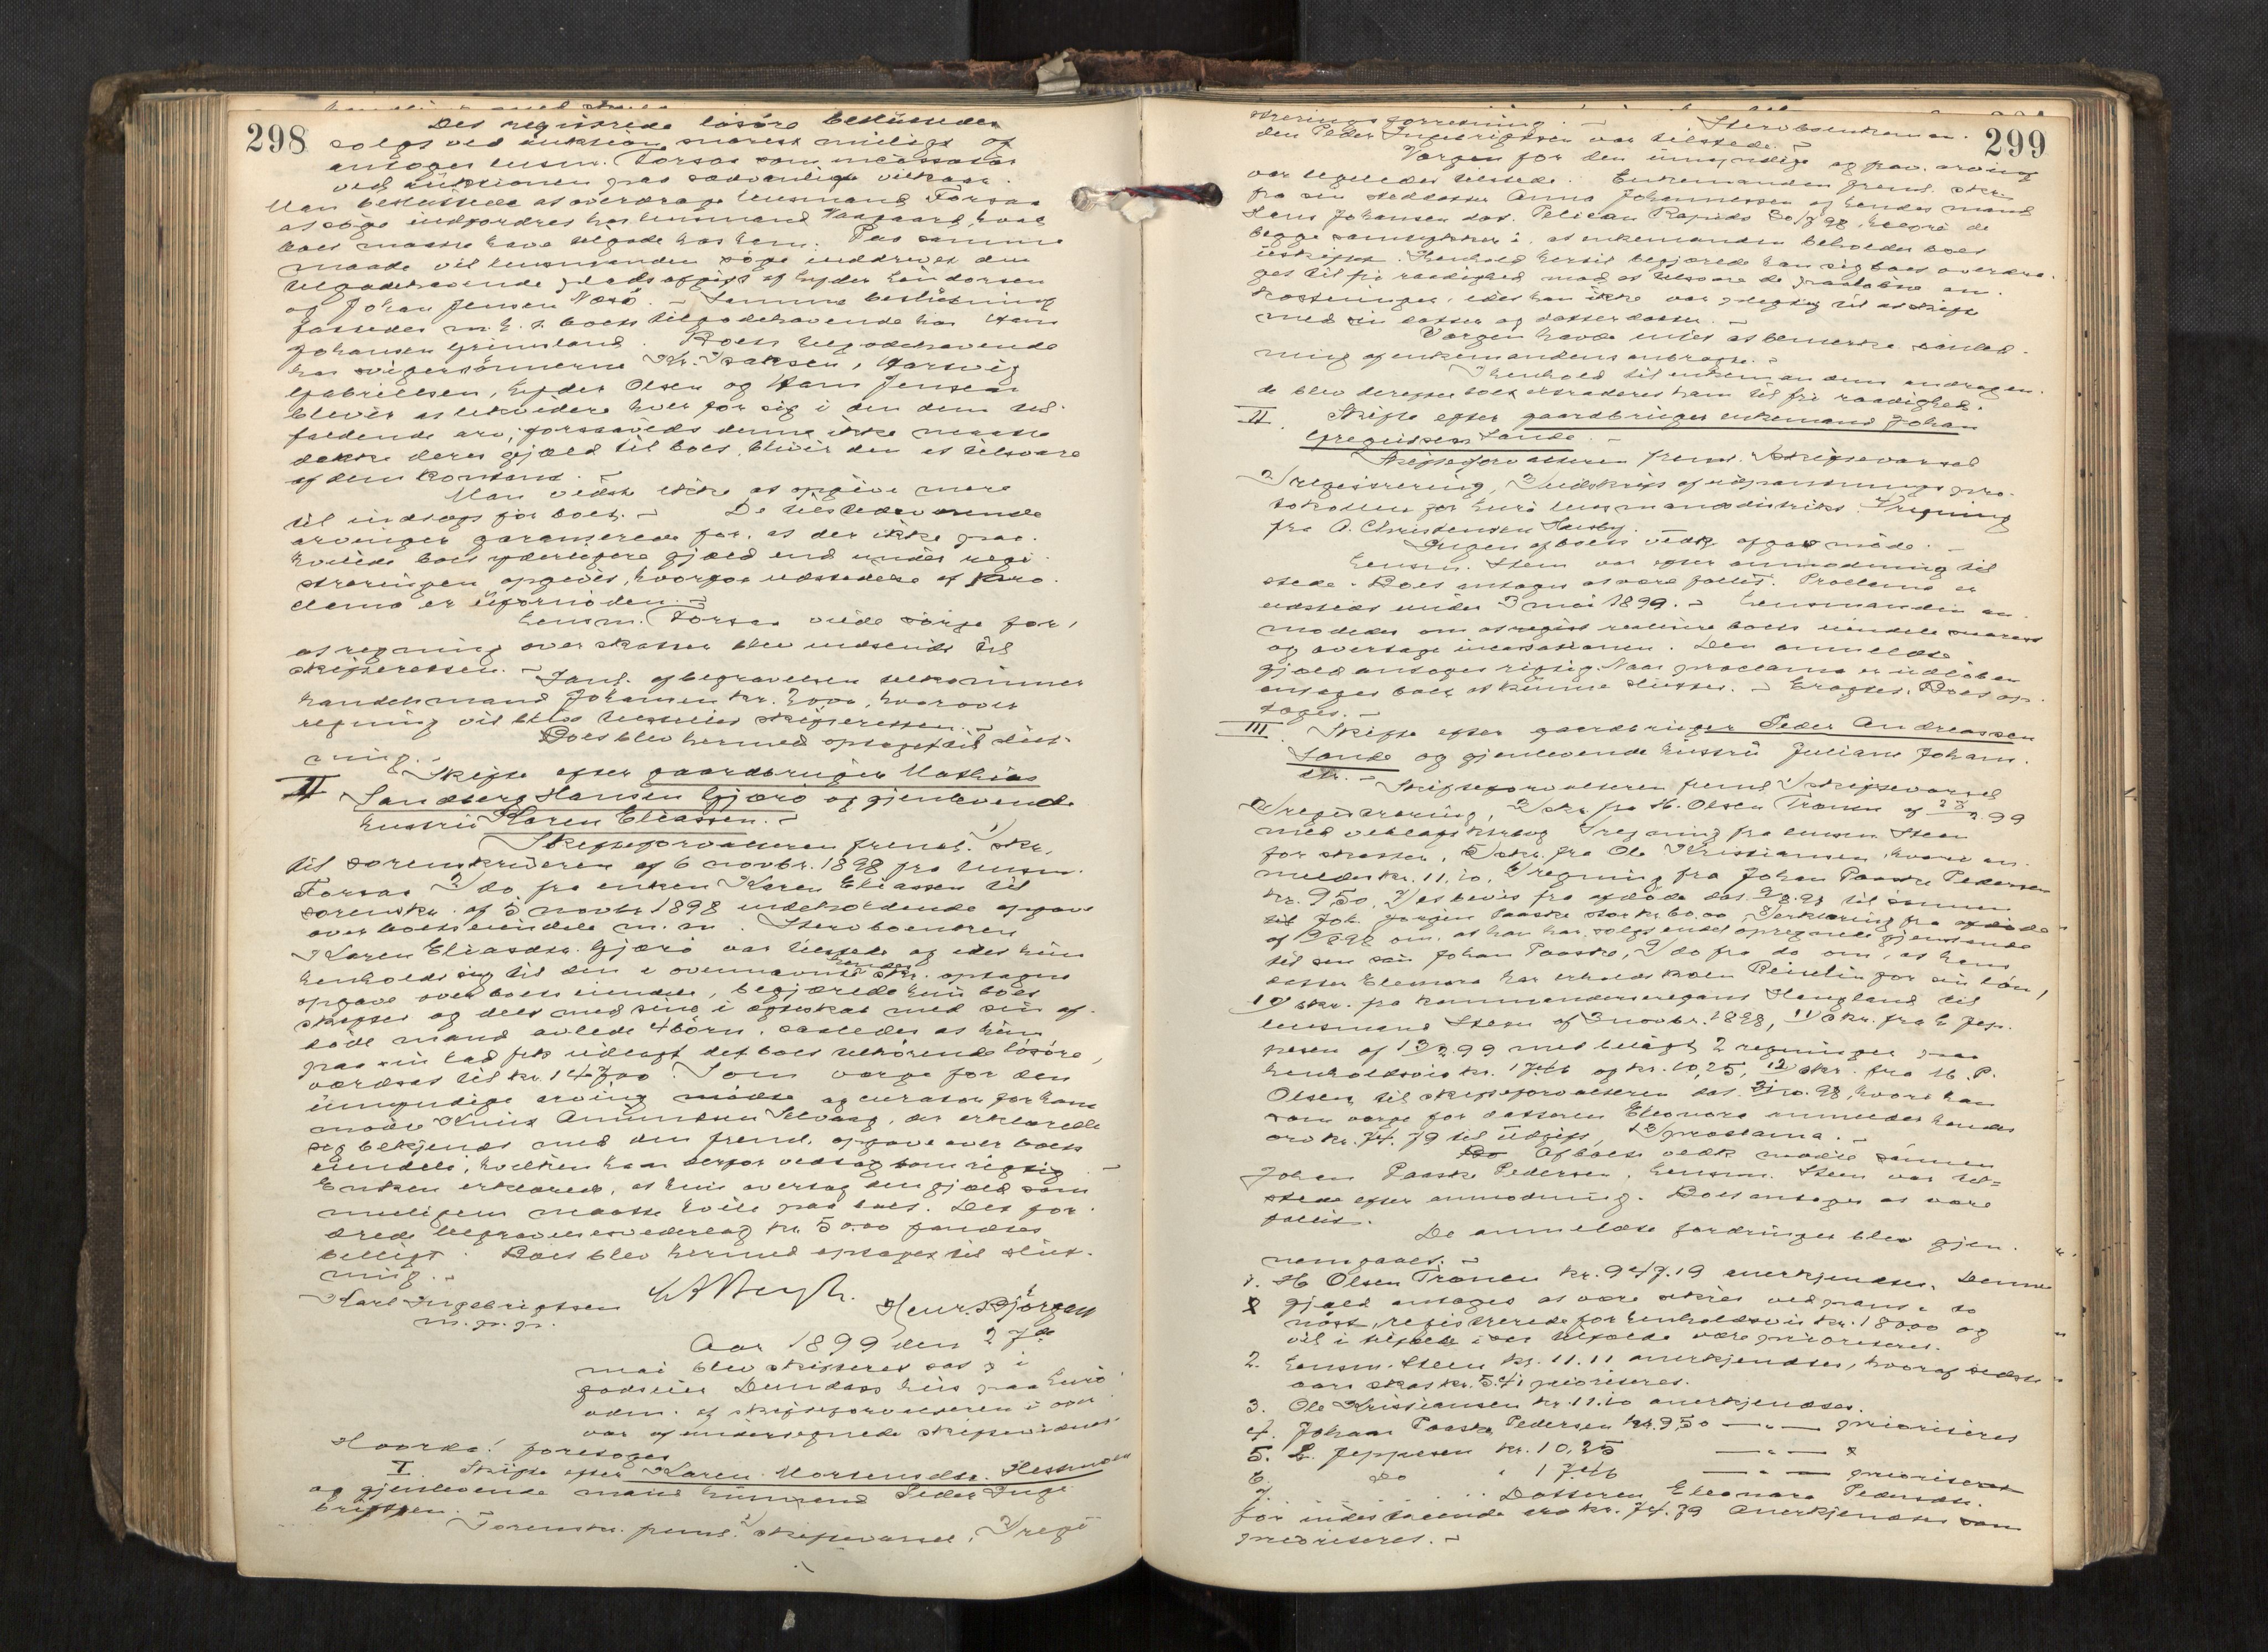 298
Det registrerede løsøre besluttedes
solgt ved auktion snarest muligt og
antoges lensm. Forsaa som incassator
ved auktionen paa sædvanlige vilkaar.
Man besluttede at overdrage lensmand Forsaa
at søge indfordret hos lensmand Vaagaard, hvad
boet maatte have tilgode hos ham. Paa samme
maade vil lensmanden søge inddrevet den
tilgodehavende pladsafgift af
og Johan Jensen Næsø. – Samme beslutning
fattedes m. h. t. boets tilgodehavende hos Hans
Johansen Grimsland. Boets tilgodehavende
hos svigersønnerne Kr. Isaksen, Hartvig
Gabrielsen, Peder Olsen og Hans Jensen
bliver at likvidere hver for sig i den dem til-
faldende arv; forsaavidt denne ikke maatte
dække deres gjæld til boet, bliver den at tilsvare
af dem kontant. –
Man vidste ikke at opgive mere
til indtægt for boet. – De tilstedeværende
arvinger garanterede for, at der ikke paa-
hvilede boet yderligere gjæld end under regi-
streringen opgivet, hvorfor udstedelse af pro-
clama er ufornøden. –
Lensm. Forsaa vilde sørge for,
at regning over skatter blev indsendt til
skifteretten. – Janf. af begravelsen tilkommer
handelsmand Johansen kr. , hvorover
regning vil blive tilstillet skifteretten. –
Boet blev hermed optaget til slut-
ning. –
II Skifte efter gaardbruger Mathias
Sandberg Hansen Gjærø og gjenlevende
hustru Karen Eliassen. –
Skifteforvalteren freml. 1) skr.
til sorenskriveren af 6 novbr. 1898 fra lensm.
Forsaa 2) do. fra enken Karen Eliassen til
sorenskr. af 5 novbr. 1898 indeholdende opgave
over boets eiendele m. m. Stervboenken
Karen Eliasdtr. Gjærø var tilstede og idet hun
henholdt sig til den i ovennævnte hendes skr. optagne
opgave over boets eiendele, begjærede hun boet
skiftet og delt med sine i ægteskab med sin af-
døde mand avlede 4 børn, saaledes at hun
paa sin lod fik udlagt det boet tilhørende løsøre,
værdsat til kr. 147,00. Som værge for den
umyndige arving mødte og curator for hans
moder Knut Amundsen Selvaag, der erklærede
sig bekjendt med den freml. opgave over boets
eiendele, hvilken han derfor vedtog som rigtig. –
Enken erklærede, at hun overtog den gjæld som
muligens maatte hvile paa boet. Det for-
drede begravelsesvederlag kr. 50.00 fandtes
billigt. Boet blev hermed optaget til slut-
ning. –
Karl Ingebrigtsen
m. p. p.
Henr. Bjørgan
Aar 1899 den 27de
mai blev skifteret sat i
godseier Dundass hus paa Lurø
adm. af skifteforvalteren i over-
vær af undertegnede skiftevidner
Hvorda! foretoges
I. Skifte efter Karen Mortensdtr.
og gjenlevende mand husmand Peder Inge-
brigtsen.
Sorenskr. freml. 1) skiftevarsel, 2) regi-
299
streringsforretning. – Stervboenkeman-
den Peder Ingebrigtsen var tilstede. –
Værgen for den umyndige og frav. arving
var ligeledes tilstede. Enkemanden freml. skr.
fra sin steddatter Anna Johannessen og hendes mand
Hans Johansen dat. Pelican Rapids 30/3 98, hvori de
begge samtykker i, at enkemanden beholder boet
uskiftet. I henhold hertil begjærede han sig boet overdra-
get til fri raadighed mod at tilsvare de paaløbne om-
kostninger, idet han ikke var pligtig til at skifte
med sin datter og datterdatter. –
Værgen havde intet at bemærke i anled-
ning af enkemandens andragende. –
I henhold til enkemandens andragen-
de blev derefter boet extraderet ham til fri raadighed.
II. Skifte efter gaardbruger enkemand Johan
Gregussen Sande. –
Skifteforvalteren freml. 1) skiftevarsel
2) registrering, 3) udskrift af udpantningspro-
tokollen for Lurø lensmandsdistrikt. 4) regning
fra A. Christensen Husby.
Ingen af boets vedk. afgav møde. –
Lensm. Steen var efter anmodning til
stede. Boet antages at være fallit. Proclama er
udstedt under 3 mai 1899. – Lensmanden an-
modedes om at realisere boets eiendele snarest
og overtage incassationen. Den anmeldte
gjæld antages rigtig. Naar proclama er udløben
antages boet at kunne sluttes. – Eragtet: Boet op-
tages. –
III. Skifte efter gaardbruger Peder Andreassen
Sande og gjenlevende hustru Juliane Johan-
dtr. – Skifteforvalteren freml. 1) skiftevarsel
2) registrering, 3) skr. fra H. Olsen Trænen af 28/2 99
med vedlagt 4) regning fra lensm. Steen
for skatter, 5) skr. fra Ole Kristiansen, hvori an-
meldes kr. 11.10, 6) regning fra Johan Paaske Pedersen
kr. 9,50, 7) beviis fra afdøde dat. 9/8 98 til sønnen
Joh. Jørgen Paaske stor kr. 60.00 8) erklæring fra afdøde
af 9/8 98 om, at han har solgt endel opregnede gjenstande
til sin søn Johan Paaske, 9) do fra do om, at hans
datter Eleonora har erholdt koen Reinelin for sin løn,
10) skr. fra kommandersergant Haugland til
lensmand Steen af 3 novbr. 1898, 11) skr. fra L. Jep-
pesen af 13/2 99 med bilagt 2 regninger paa
henholdsvis kr. 17.46 og kr. 10,25, 12) skr. fra M. P.
Olsen til skifteforvalteren dat. 31/10. 98, hvori han
som værge for datteren Eleonora anmelder hendes
arv kr. 74.79 til udgift, 13) proclama. –
Af boets vedk. mødte sønnen
Johan Paaske Pedersen. Lensm. Steen var til=
stede efter anmodning. Boet antages at være
fallit.
De anmeldte fordringer blev gjen-
nemgaaet. –
1. H. Olsen Trænen kr. 947.19 anerkjendtes. Denne
gjæld antages at være sikret ved pant i do
nøst, registrerede for henholdsvis kr. 180.00 og
vil i tilfælde være prioriteret.
2. Lensm. Steen kr. 11.11 anerkjendtes, hvoraf sidste
aars skat kr. 5.41 prioriteres.
3. Ole Kristiansen kr. 11.10 anerkjendtes.
4. Johan Paaske Pedersen kr. 9,50 — „ — prioriteres
5. L. Jeppesen kr. 10,25 — „ —
6. do „ 17.46 — „ — prioriteret
7. Datteren Eleonora Pedersdtr.
for indestaaende arv kr. 74.79 anerkjendtes som
prioriteret. –